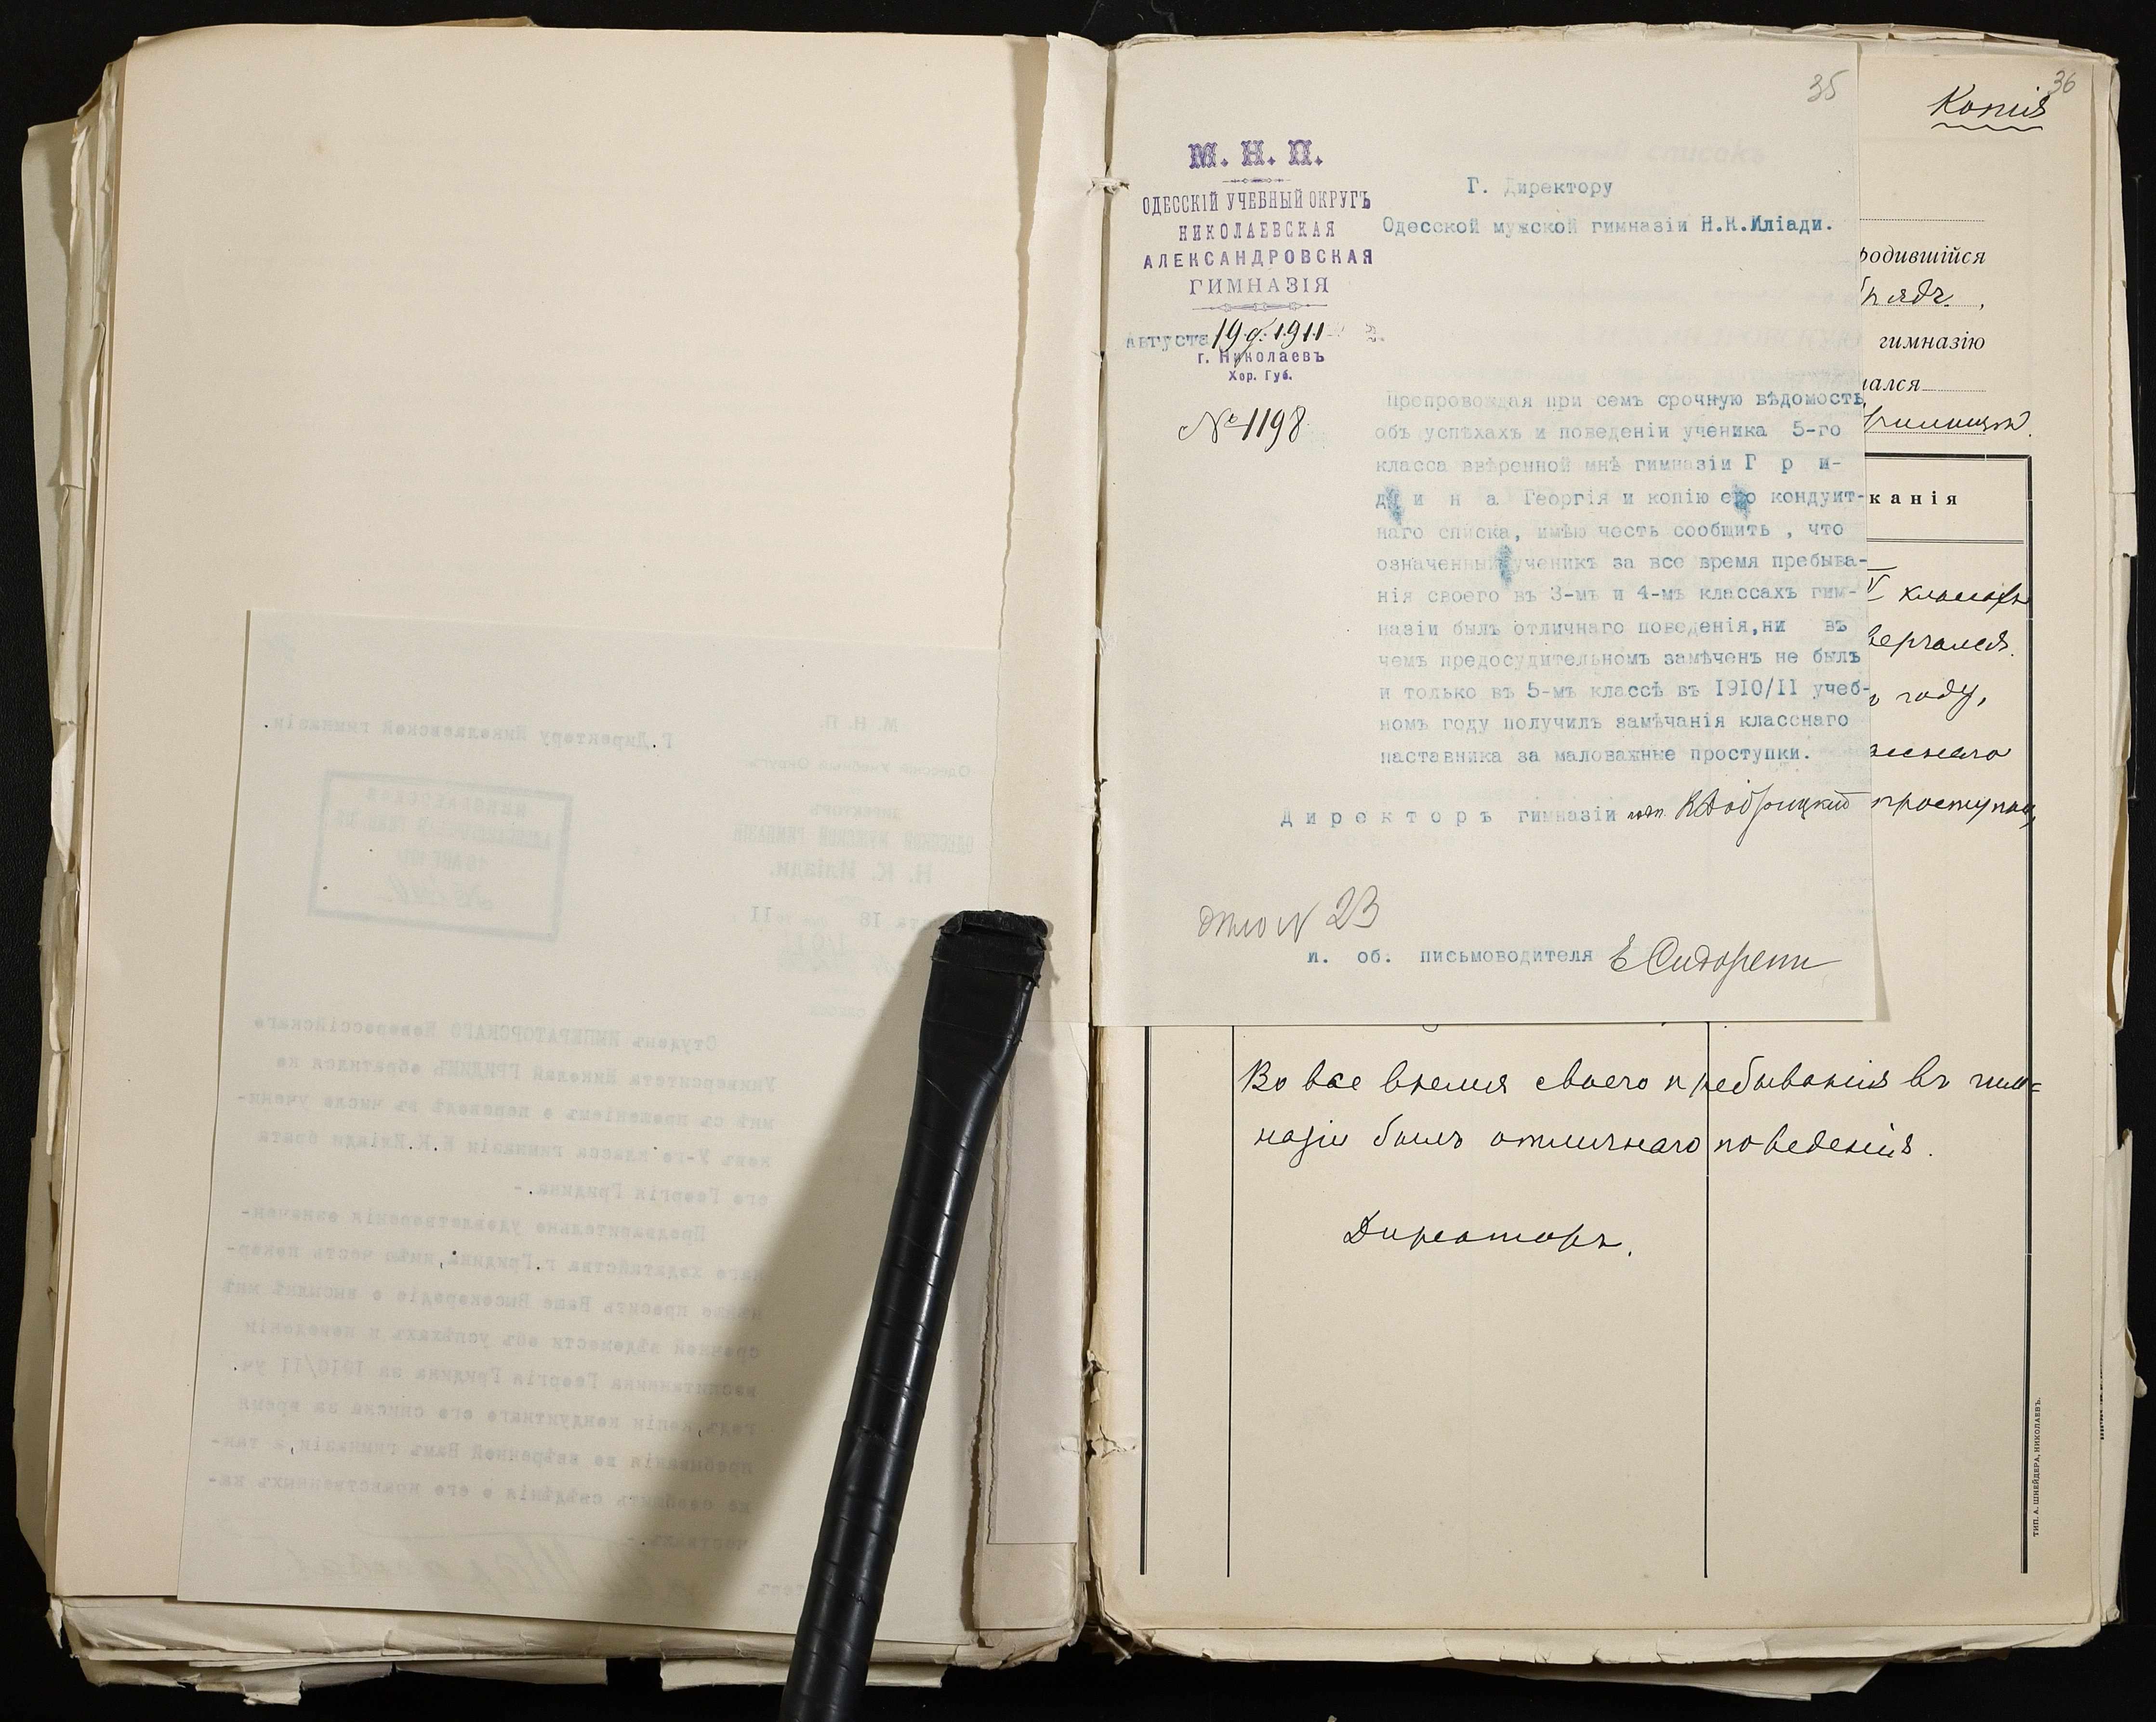 35
М. Н. П.
ОДЕССКІЙ УЧЕБНЫЙ ОКРУГЪ
НИКОЛАЕВСКАЯ
АЛЕКСАНДРОВСКАЯ
ГИМНАЗІЯ
Августа 19 д. 1911
г. Николаевъ
Хер. Губ.
№ 1198
Г. Директору
Одесской мужской гимназіи Н.К.Иліади.
Препровождая при семъ срочную вѣдомость
объ успѣхахъ и поведеніи ученика 5-го
класса ввѣренной мнѣ гимназіи Г р и-
д и н а Георгія и копію его кондуит-
наго списка, имѣю честь сообщить , что
означенный ученикъ за все время пребыва-
нія своего въ 3-мъ и 4-мъ классахъ гим-
назіи былъ отличнаго поведенія,ни въ
чемъ предосудительномъ замѣченъ не былъ
и только въ 5-мъ классѣ въ 1910/11 учеб-
номъ году получилъ замѣчанія класснаго
наставника за маловажные проступки.
Директоръ гимназіи
дѣло № 23
и. об. письмоводителя
36
Копія
родившійся
гимназію
ался
канія
V классахъ
вергался.
году,
проступки,
Во все время своего пребыванія въ гим=
назіи былъ отличнаго поведенія.
Директоръ.
ТИП. А. ШНЕЙДЕРА, НИКОЛАЕВЪ.
Г.Директору Николаевской гимназіи.
М. Н. П.
Одесскій Учебный Округъ
ДИРЕКТОРЪ
ОДЕССКОЙ МУЖСКОЙ ГИМНАЗІИ
Н. К. Иліади.
Студентъ ИМПЕРАТОРСКАГО Новороссійскаго
Университета Николай ГРИДИНЪ обратился ко
мнѣ съ прошеніемъ о переводѣ въ число учени-
ковъ V-го класса гимназіи Н.К.Иліади брата
его Георгія Гридина.-
Предварительно удовлетворенія означен-
наго ходатайства г.Гридина,имѣю честь покор-
нѣйше просить Ваше Высокородіе о высылкѣ мнѣ
срочной вѣдомости объ успѣхахъ и поведеніи
воспитанника Георгія Гридина за 1910/11 уч.
годъ,копіи кондуитнаго его списка за время
пребыванія во ввѣренной Вамъ гимназіи,а так-
же сообщить свѣдѣнія о его нравственныхъ ка-